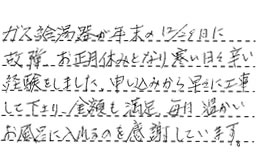 ガス給湯器が年末の12/29日に
故障、お正月休みとなり寒い日々辛い
経験をしました。申し込みから早さに工事
して下さり、金額も満足。毎日温かい
お風呂に入れるのを感謝しています。